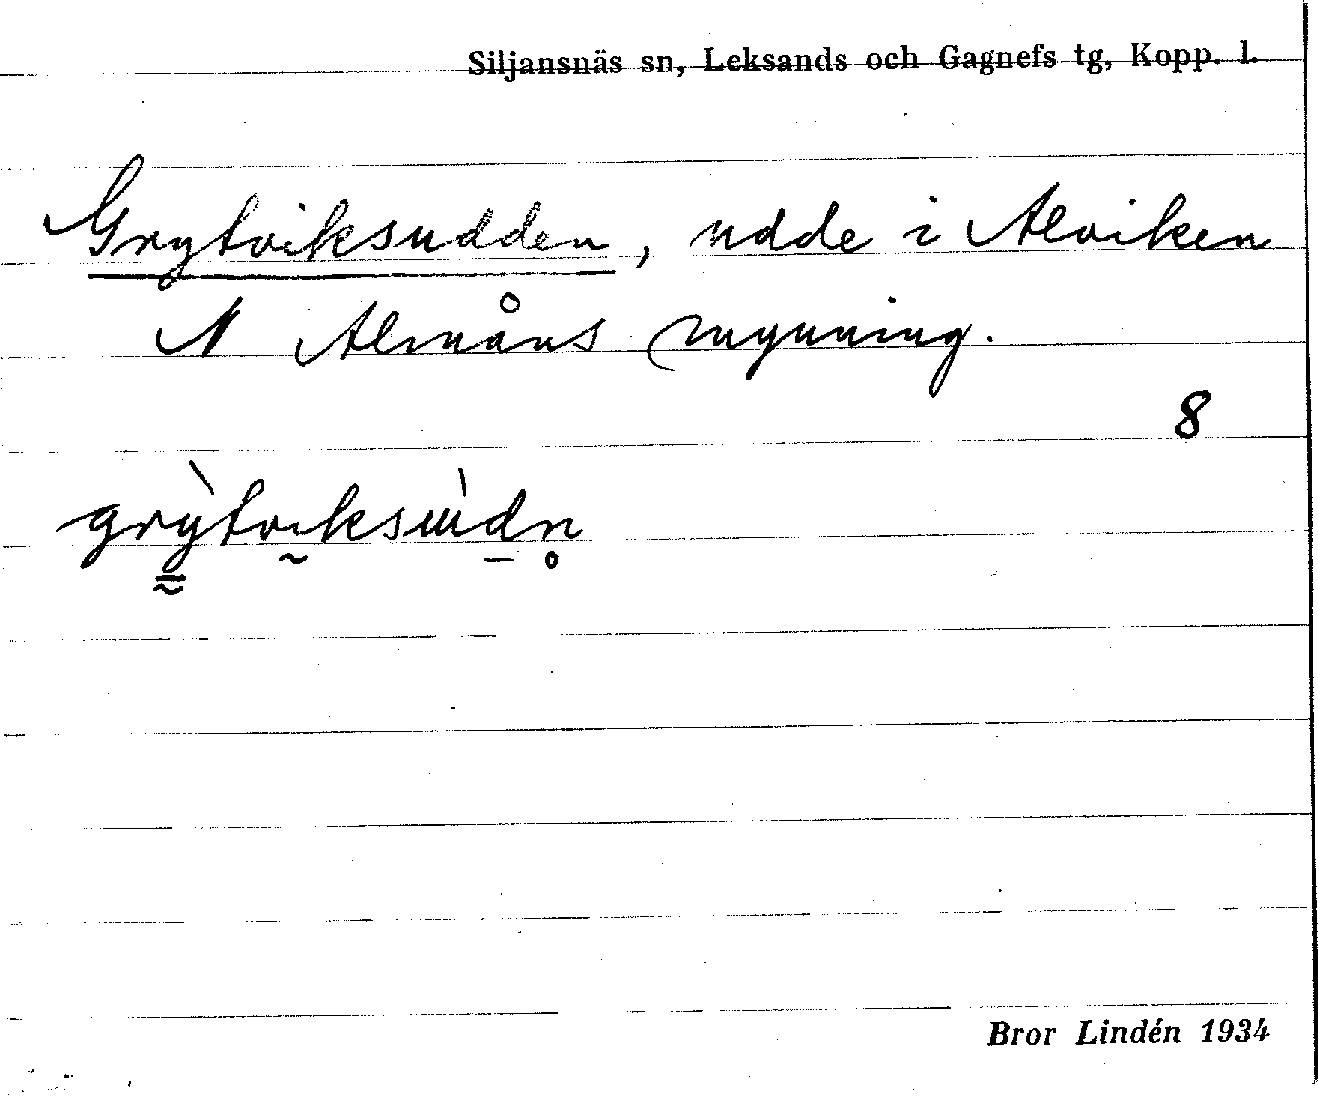 Siljansnäs sn, Leksands och Gagnefs tg, Kopp. l.
Grytviksudden, udde i Alviken
N Almåns mynning.
8
grỳtviksɯ̀dn̥
Bror Lindén 1934